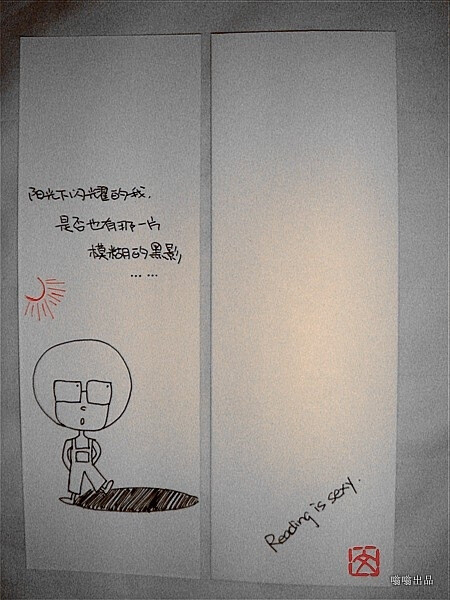 阳光下闪耀的我.
是否也有那一片
模糊的黑影
... ...
Reading is sexy.
文
嗡嗡出品